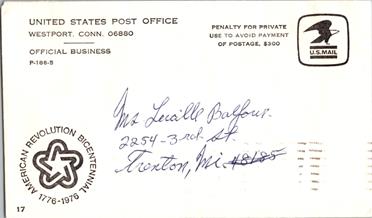 UNITED STATES POST OFFICE
WESTPORT, CONN. 06880
OFFICIAL BUSINESS
P-186-5
PENALTY FOR PRIVATE
USE TO AVOID PAYMENT
OF POSTAGE, $300
U.S.MAIL
Ms Lucille Balfour
2254-3rd St
Trenton, Mi 48185
AMERICAN REVOLUTION BICENTENNIAL
1776-1976
17